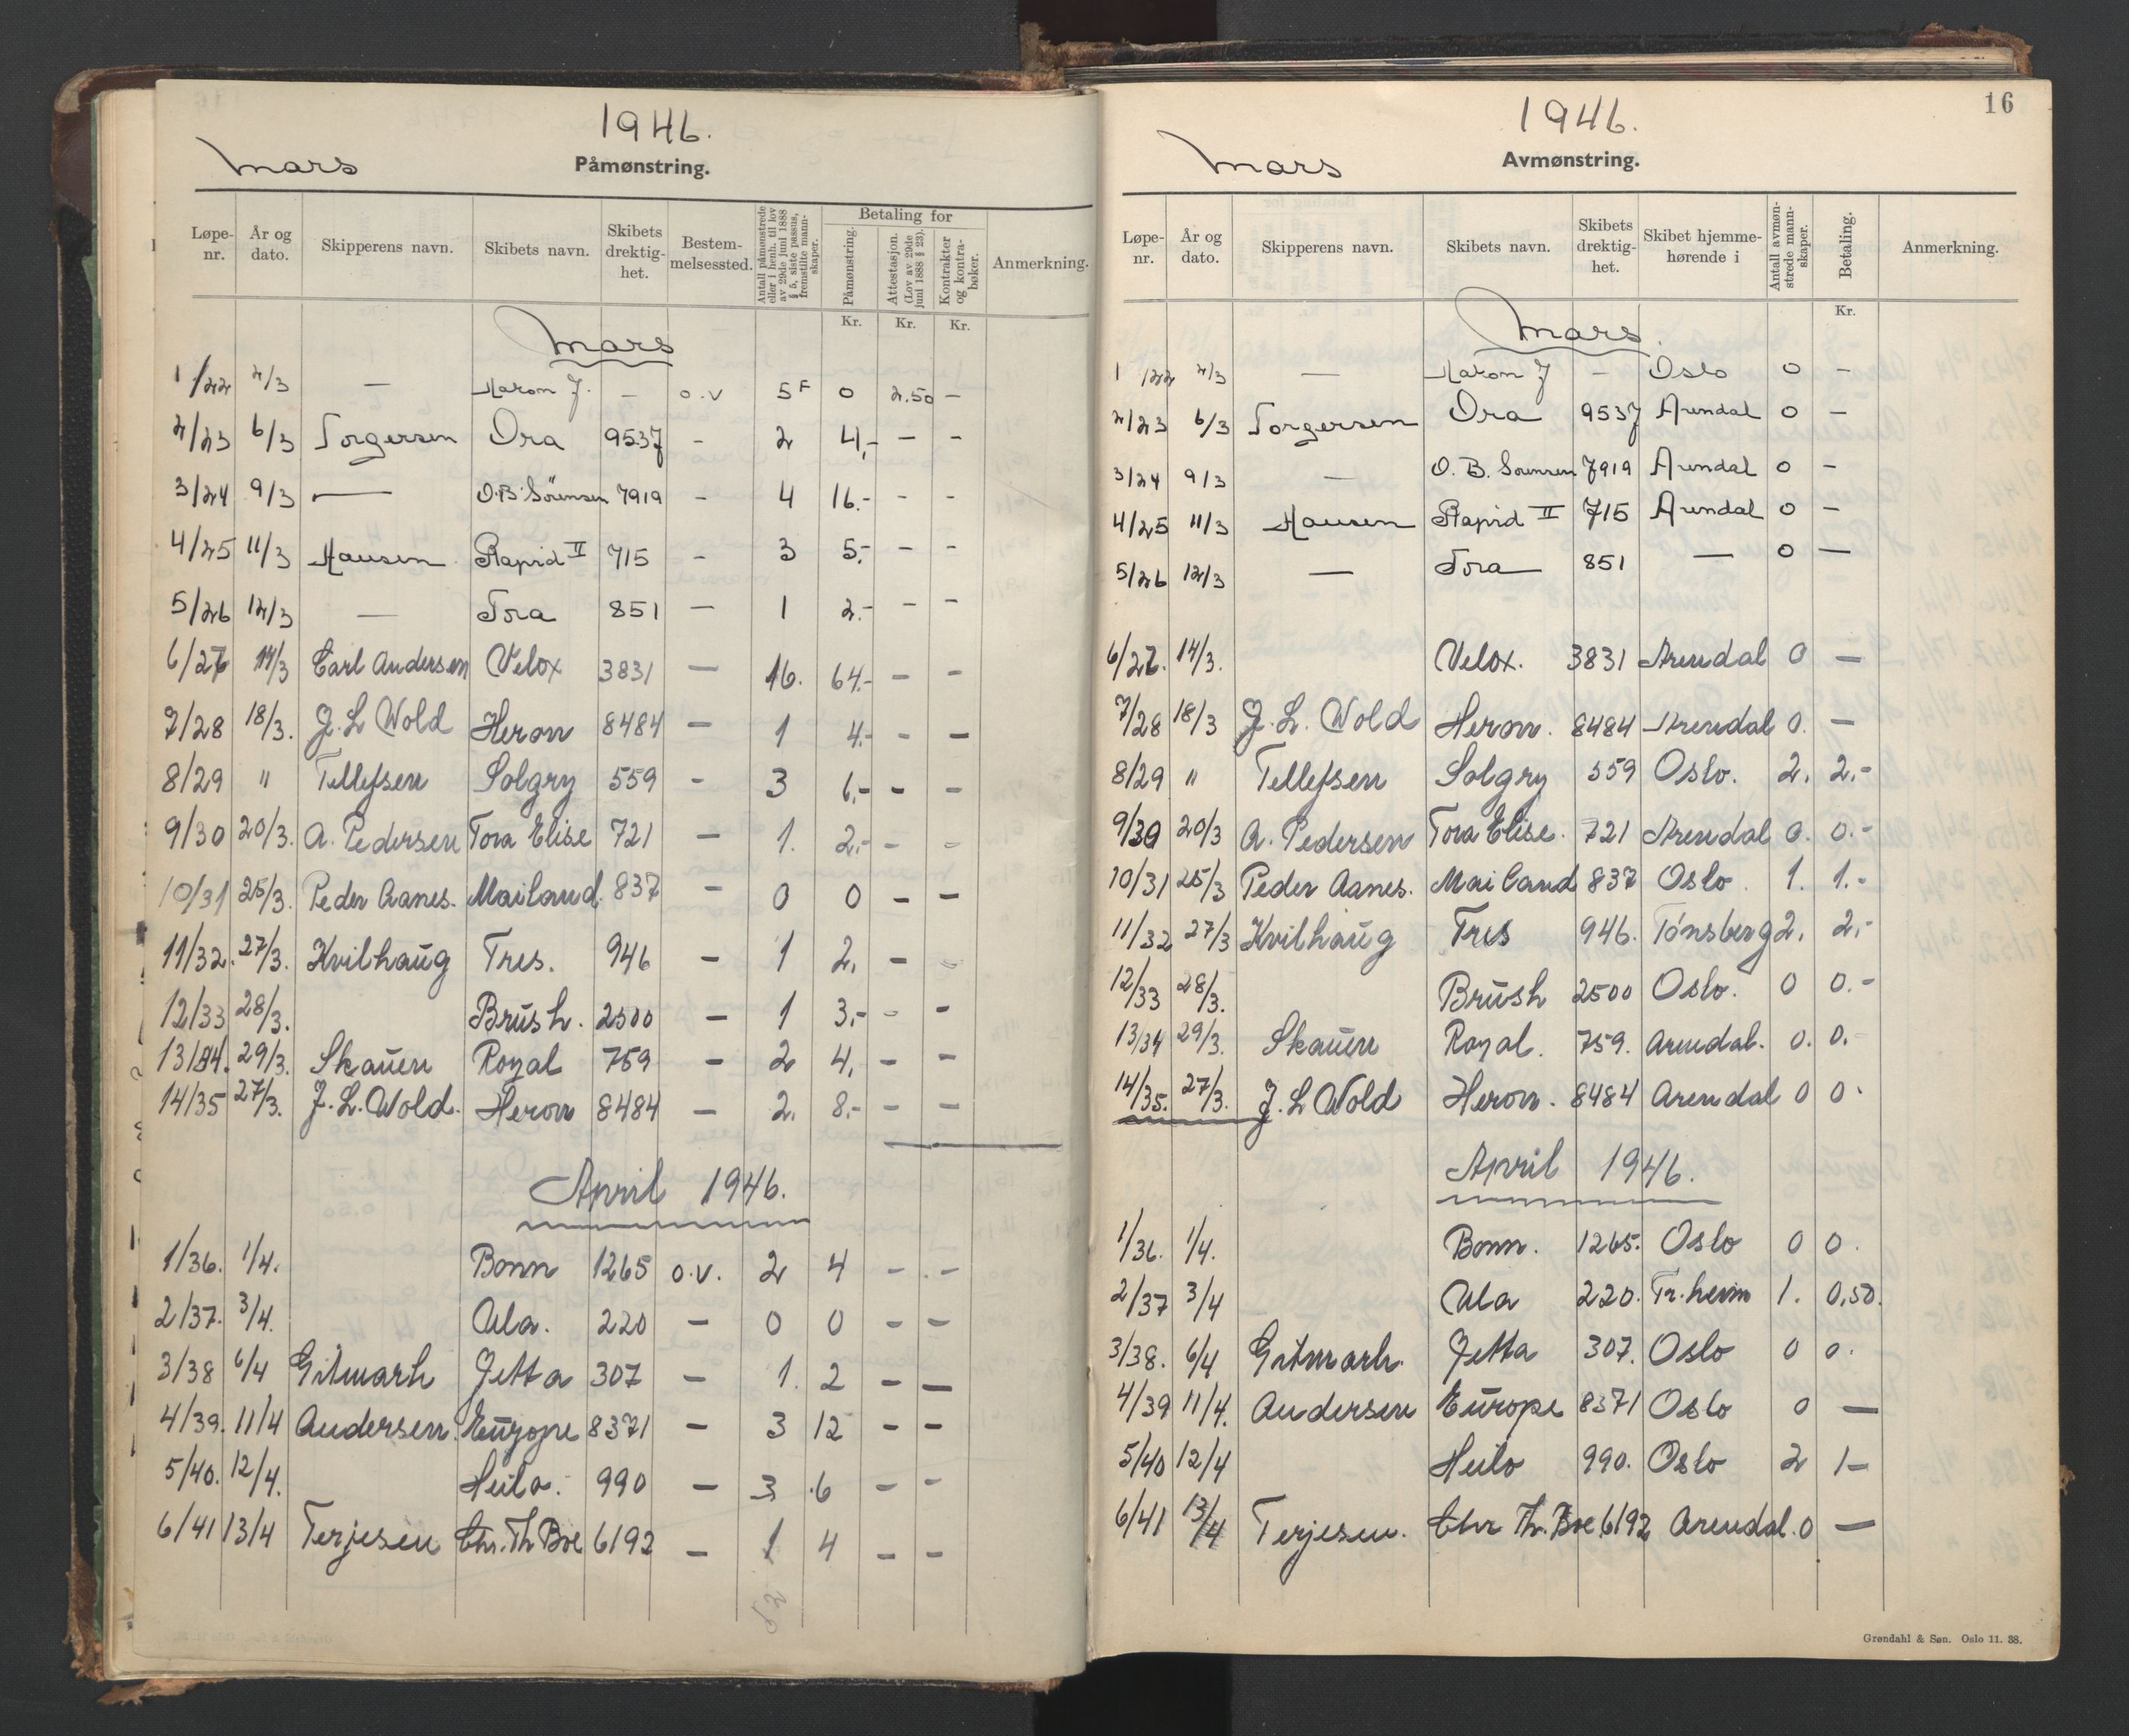 1946.
mars
Påmønstring.
Løpe-nr. År og dato. Skipperens navn. Skibets navn. Skibets drektig-het. Bestem-melsessted. Antall påmønstrede eller i henh. til lov av 29de juni 1888 § 5, siste passus, fremstilte mann-skaper. Betaling for Påmønstring. Attestasjon. (Lov av 29de juni 1888 § 23). Kontrakter og kontra-bøker. Anmerkning.
Kr. Kr. Kr.
Mars
1/22 2/3 — Hakon J. — o.v 5 F 0 2.50 —
2/23 6/3 Torgersen Ora 9537 - 2 4,- - -
3/24 9/3 — O.B. Sörensen 7919 - 4 16.- - -
4/25 11/3 Hansen Rapid II 715 - 3 5.- - -
5/26 12/3 — Tora 851 — 1 2.- - -
6/27 14/3 Carl Andersen Velox 3831 — 16. 64.- - -
7/28 18/3. J. L Wold Heron 8484 — 1 4.- - -
8/29 " Tellefsen Solgry 559 - 3 6,- - -
9/30 20/3. A. Pedersen Tora Elise 721 — 1. 2,- - -
10/31 25/3. Peder Aanes. Mailand. 837 - 0 0 - -
11/32. 27/3. Kvilhaug Tres. 946 - 1 2, - -
12/33 28/3. Brush. 2500 — 1 3,- - -
13/34. 29/3. Skauen Royal 759 — 2 4, - -
14/35 27/3. J. L. Wold. Heron 8484 — 2. 8.- - -
April 1946.
1/36. 1/4. Bonn 1265 o.v. 2 4 - -
2/37. 3/4. Ula. 220 — 0 0 - -
3/38 6/4 Gitmark Jetta 307 - 1. 2 - —
4/39. 11/4 Andersen. Europe 8371 — 3 12 - -
5/40. 12/4. Heilo. 990 — 3 6 - -
6/41 13/4 Terjesen Chr. Th Boe 6192 — 1 4 - -
16
1946.
Mars
Avmønstring.
Løpe-nr. År og dato. Skipperens navn. Skibets navn. Skibets drektig-het. Skibet hjemme-hørende i Antall avmøn-strede mann-skaper. Betaling. Anmerkning.
Kr.
Mars.
1/22 2/3 — Hakon J — Oslo 0 -
2/23 6/3 Torgersen Ora 9537 Arendal 0 -
3/24 9/3 — O. B. Sörensen 7919 Arendal 0 -
4/25 11/3 Hansen Rapid II 715 Arendal 0 -
5/26 12/3 — Tora 851 — 0 —
6/27. 14/3. Velox. 3831 Arendal 0 —
7/28 18/3 J. L. Wold Heron. 8484 Arendal 0. —
8/29 " Tellefsen Solgry 559 Oslo. 2. 2.-
9/30 20/3 A. Pedersen Tora Elise. 721 Arendal 0. 0.-
10/31 25/3 Peder Aanes. Mailand 837 Oslo. 1. 1.-
11/32 27/3 Kvilhaug Tres 946. Tönsberg 2. 2.-
12/33 28/3. Brush 2500 Oslo. 0 0.-
13/34 29/3. Skauen Royal. 759. Arendal. 0. 0.
14/35. 27/3. J. L Wold Heron. 8484 Arendal 0 0.
April 1946.
1/36. 1/4. Bonn. 1265. Oslo 0 0.
2/37 3/4 Ula 220. Tr.heim 1. 0,50.
3/38. 6/4 Gitmark. Jetta 307. Oslo 0 0.
4/39 11/4. Andersen Europe 8371 Oslo 0 —
5/40 12/4 Heilo 990. Oslo 2 1-
6/41 13/4 Terjesen. Chr Th. Boe 6192 Arendal. 0 —
Grøndahl & Søn. Oslo 11. 38.